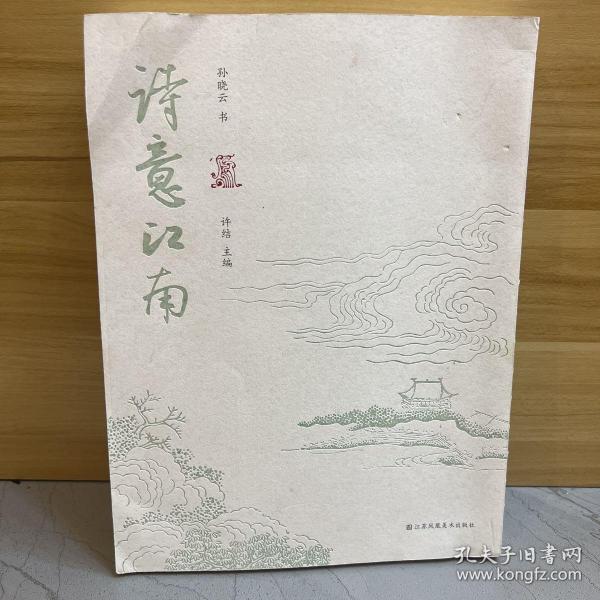 诗意江南
孙晓云 书
许结 主编
江苏凤凰美术出版社
孔夫子旧书网
www.kongfz.com